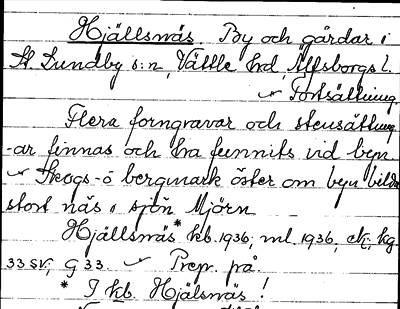 Hjällsnäs By och gårdar i
St. Lundby s:n, Vättle hd, Älfsborgs l.
Fortsättning.
Flera forngravar och stensättning
-ar finnas och ha funnits vid byn.
Skogs- o bergmark öster om byn bilda
stort näs i sjön Mjörn
Hjällsnäs* kb. 1936, ml. 1936, ek., kg.
33 SV., G 33. Prep. på.
* I kb. Hjälsnäs!